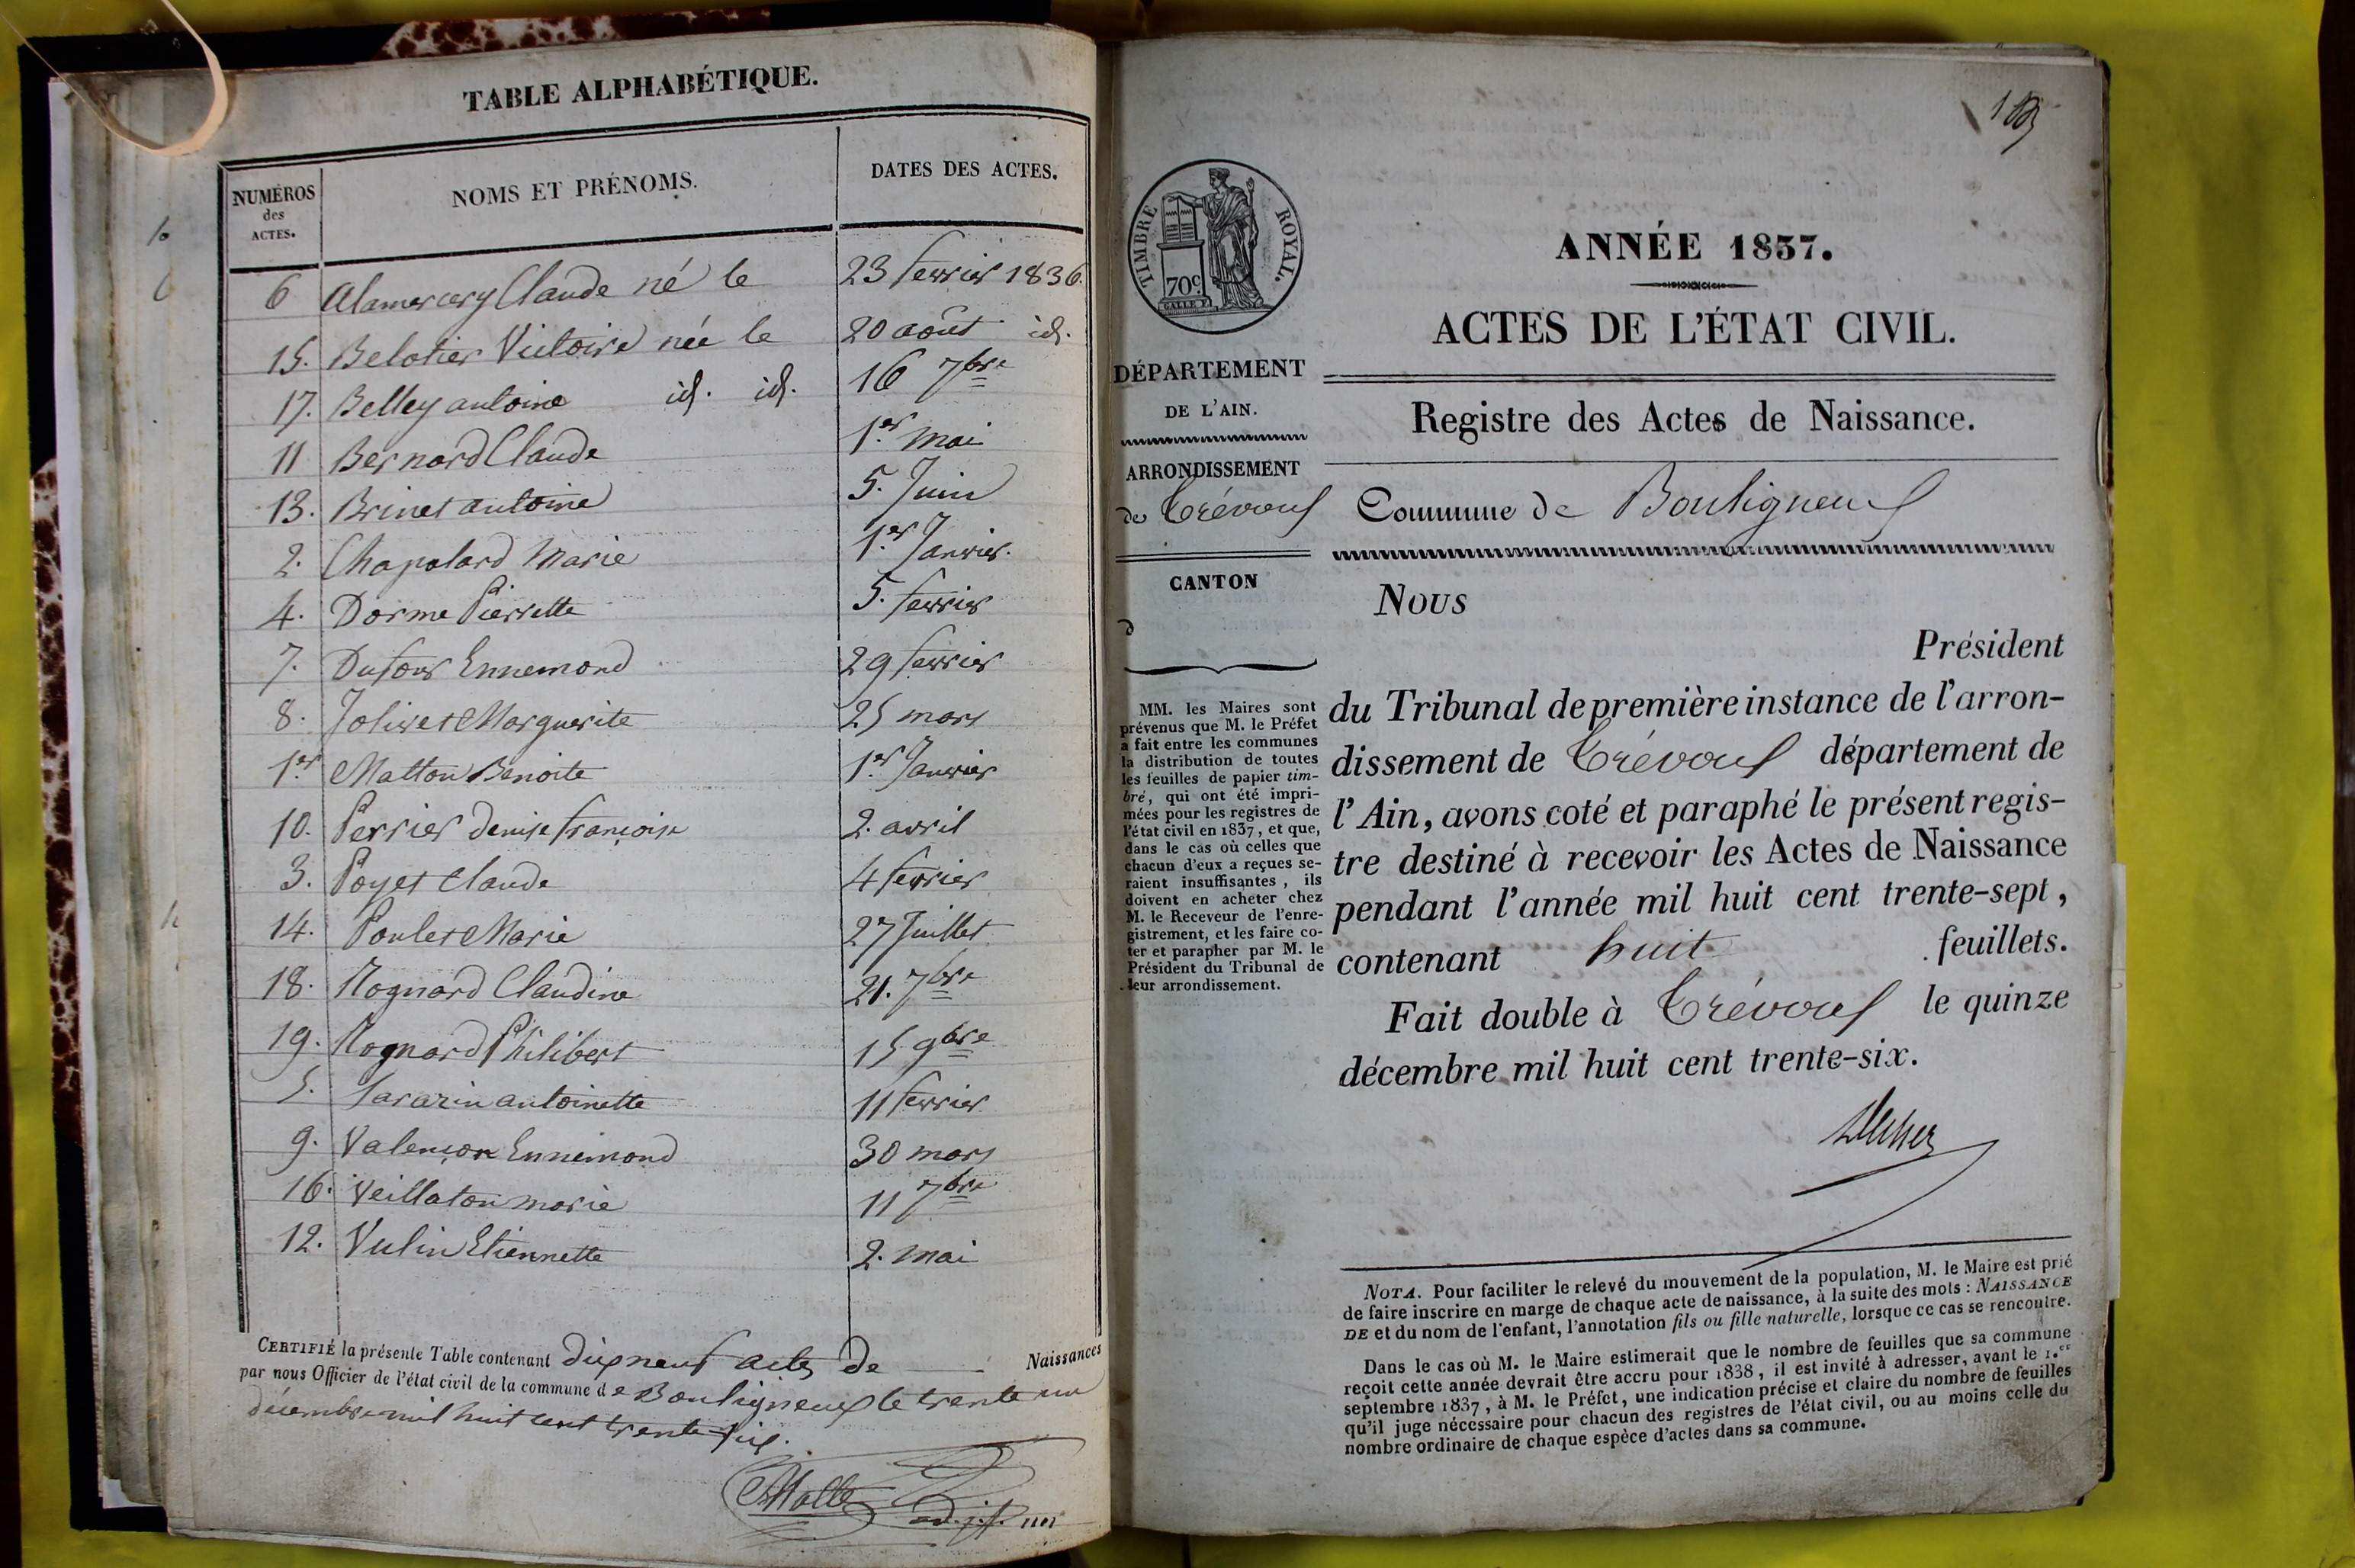 TABLE ALPHABÉTIQUE.
NUMÉROS des ACTES. NOMS ET PRÉNOMS. DATES DES ACTES.
6 Alamercery Claude né le 23 fevrier 1836.
15. Belotier Victoire née le 20 août id.
17. Belley antoine id. id. 16 7bre
11 Bernard Claude 1er mai
13. Brinet antoine 5. Juin
2. Chapolard Marie 1er Janvier.
4. Dorme Pierrette 5. fevrier
7. Dufour Ennemond 29 fevrier
8. Jolivet Marguerite 25 mars
1er Matton Benoite 1er Janvier
10. Perrier denise françoise 2. avril
3. Poyet Claude 4 fevrier
14. Poulet Marie 27 Juillet
18. Rognard Claudine 21. 7bre
19. Rognard Philibert 15 9bre
5. Sarazin antoinette 11 fevrier
9. Valençon Ennemond 30 mars
16. Veillaton marie 11 7bre
12. Vulin Etiennette 2. mai
CERTIFIÉ la présente Table contenant dix neuf actes de Naissances
par nous Officier de l'état civil de la commune de Bouligneux le trente un
décembre mil huit cent trente six.
ANNÉE 1837.
ACTES DE L'ÉTAT CIVIL.
Registre des Actes de Naissance.
Commune de Bouligneux
TIMBRE ROYAL.
70c.
DÉPARTEMENT
DE L'AIN.
ARRONDISSEMENT
de Trévoux
CANTON
d
MM. les Maires sont
prévenus que M. le Préfet
a fait entre les communes
la distribution de toutes
les feuilles de papier tim-
bré, qui ont été impri-
mées pour les registres de
l'état civil en 1837, et que,
dans le cas où celles que
chacun d'eux a reçues se-
raient insuffisantes, ils
doivent en acheter chez
M. le Receveur de l'enre-
gistrement, et les faire co-
ter et parapher par M. le
Président du Tribunal de
leur arrondissement.
NOUS
Président
du Tribunal de première instance de l'arron-
dissement de Trévoux département de
l'Ain, avons coté et paraphé le présent regis-
tre destiné à recevoir les Actes de Naissance
pendant l'année mil huit cent trente-sept,
contenant huit feuillets.
Fait double à Trévoux le quinze
décembre mil huit cent trente-six.
NOTA. Pour faciliter le relevé du mouvement de la population, M. le Maire est prié
de faire inscrire en marge de chaque acte de naissance, à la suite des mots : NAISSANCE
DE et du nom de l'enfant, l'annotation fils ou fille naturelle, lorsque ce cas se rencontre.
Dans le cas où M. le Maire estimerait que le nombre de feuilles que sa commune
reçoit cette année devrait être accru pour 1838, il est invité à adresser, avant le 1.er
septembre 1837, à M. le Préfet, une indication précise et claire du nombre de feuilles
qu'il juge nécessaire pour chacun des registres de l'état civil, ou au moins celle du
nombre ordinaire de chaque espèce d'actes dans sa commune.